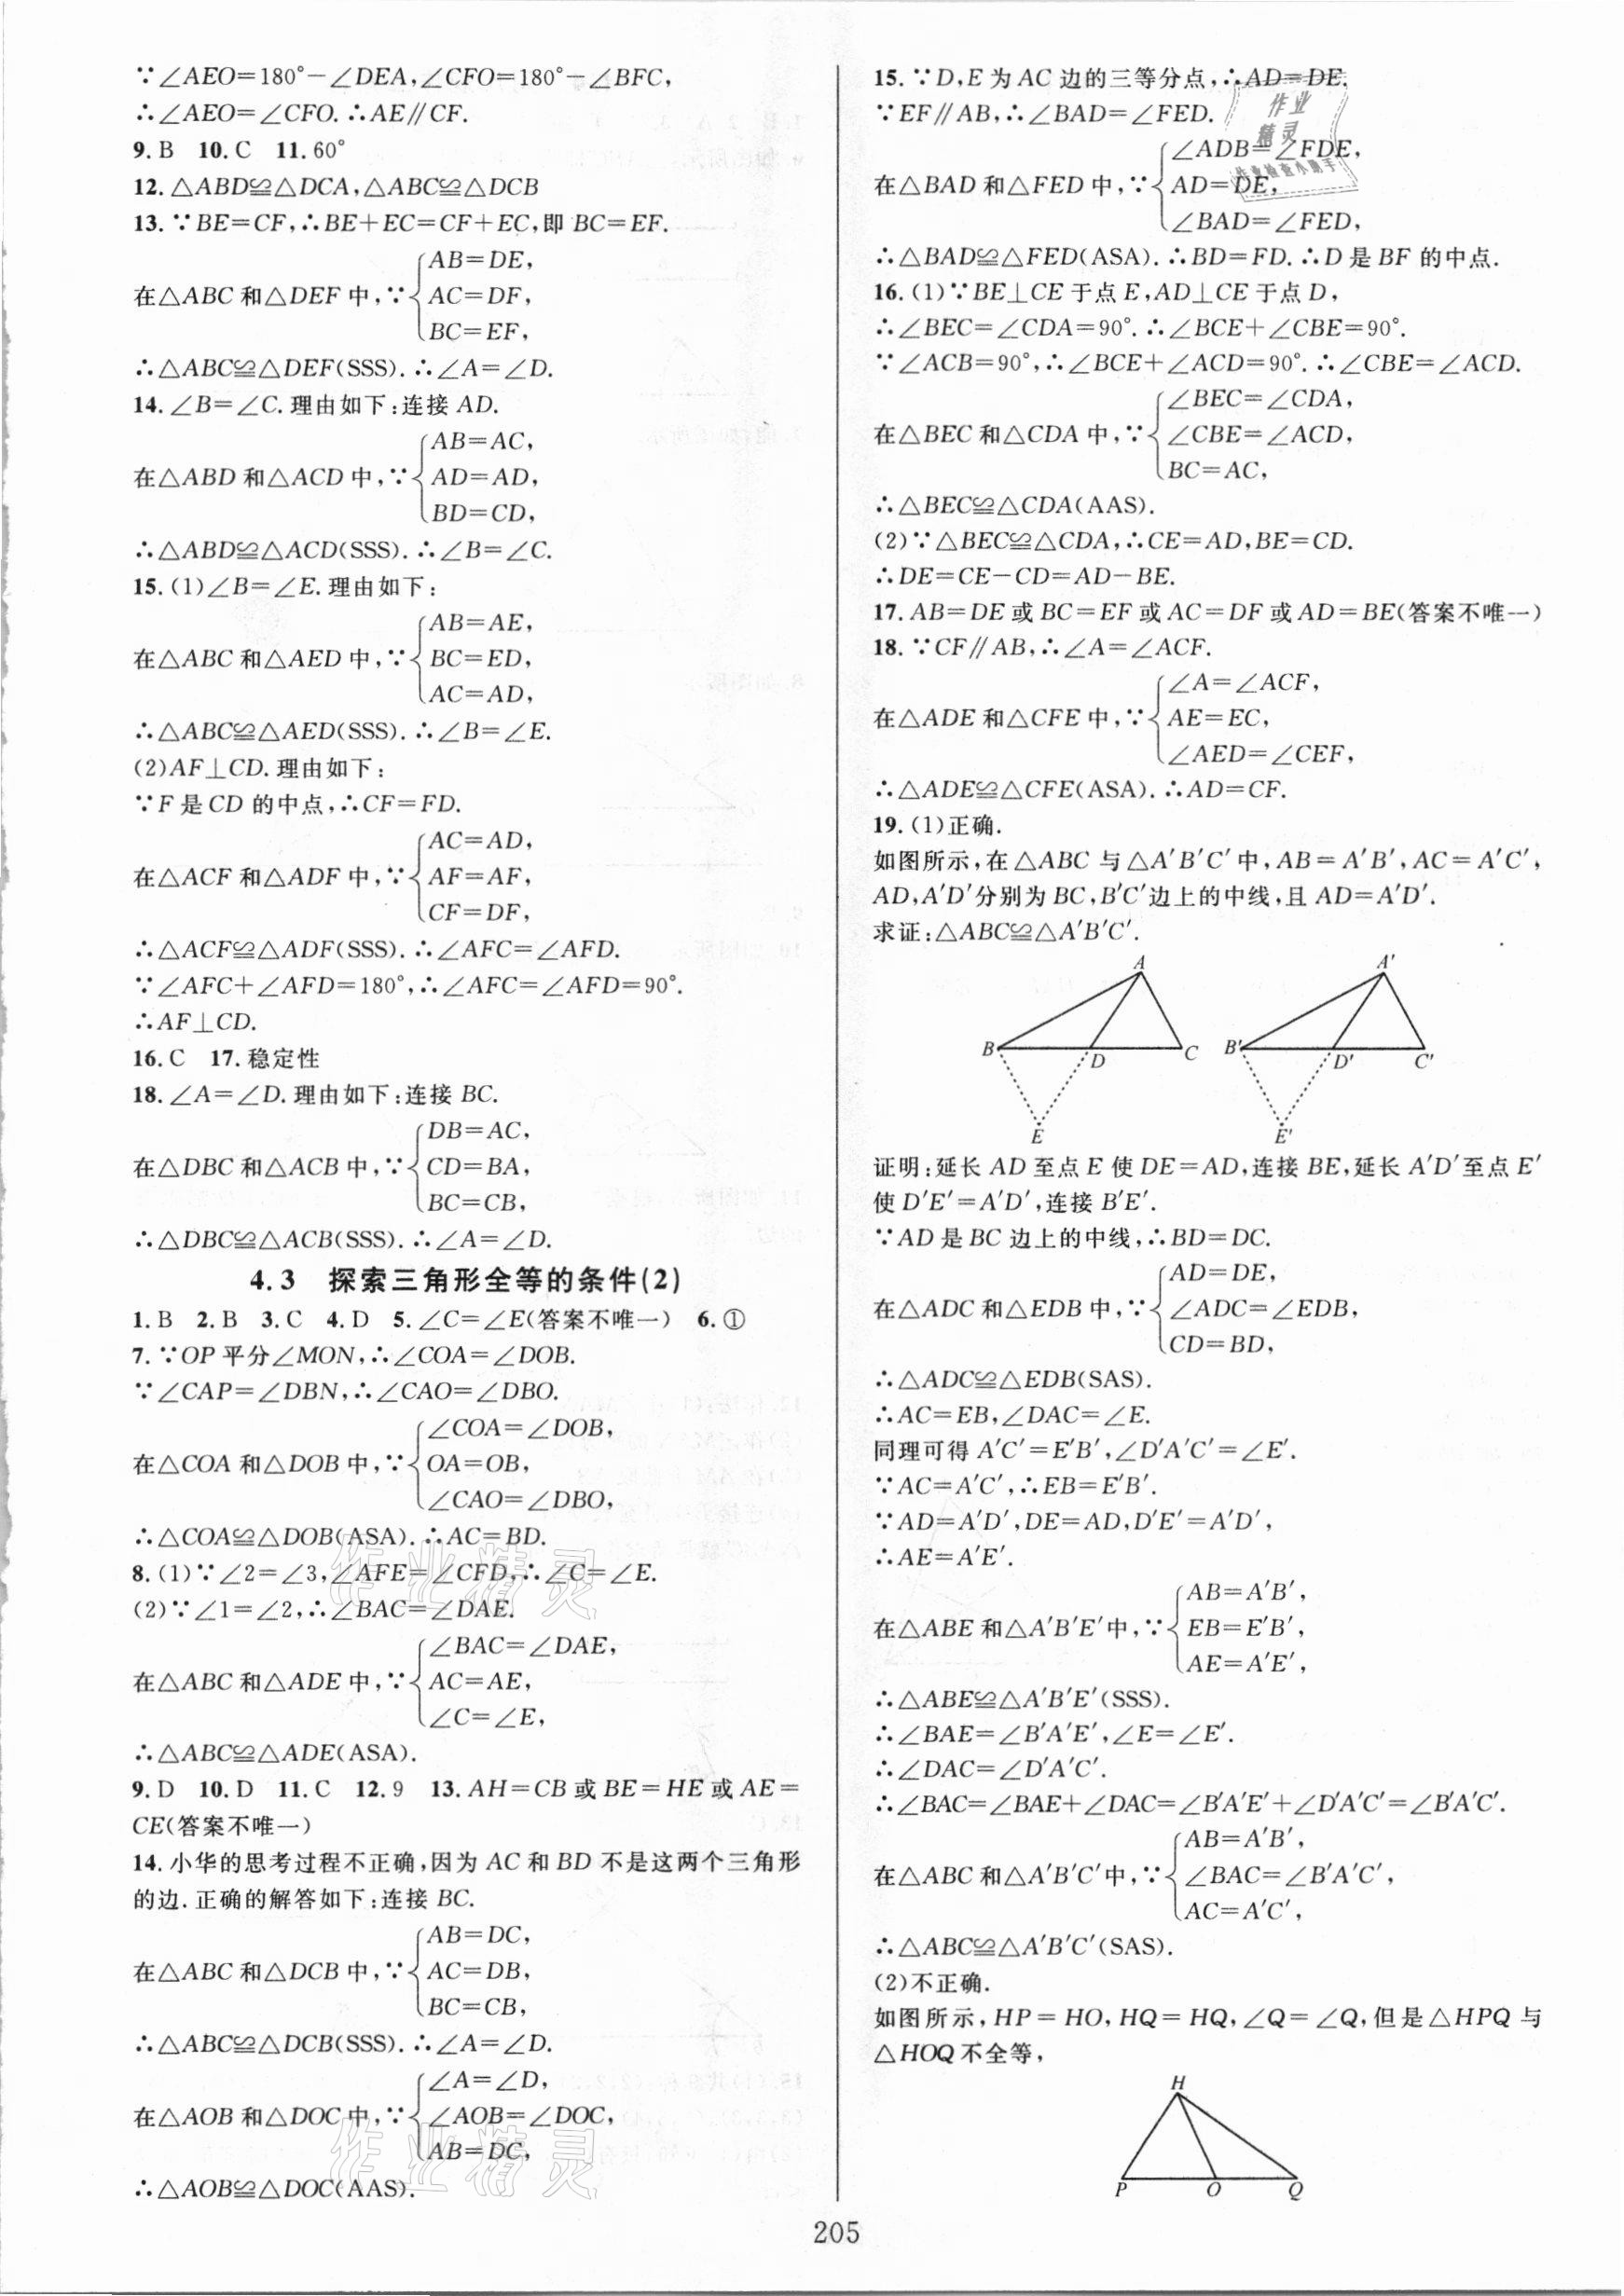 ∵∠AEO=180°-∠DEA,∠CFO=180°-∠BFC,
∴∠AEO=∠CFO.∴AE∥CF.
9.B 10.C 11.60°
12.△ABD≌△DCA,△ABC≌△DCB
13.∵BE=CF,∴BE+EC=CF+EC,即BC=EF.
在△ABC和△DEF中,∵{AB=DE,
AC=DF,
BC=EF,
∴△ABC≌△DEF(SSS).∴∠A=∠D.
14.∠B=∠C.理由如下:连接AD.
在△ABD和△ACD中,∵{AB=AC,
AD=AD,
BD=CD,
∴△ABD≌△ACD(SSS).∴∠B=∠C.
15.(1)∠B=∠E.理由如下:
在△ABC和△AED中,∵{AB=AE,
BC=ED,
AC=AD,
∴△ABC≌△AED(SSS).∴∠B=∠E.
(2)AF⊥CD.理由如下:
∵F是CD的中点,∴CF=FD.
在△ACF和△ADF中,∵{AC=AD,
AF=AF,
CF=DF,
∴△ACF≌△ADF(SSS).∴∠AFC=∠AFD.
∵∠AFC+∠AFD=180°,∴∠AFC=∠AFD=90°.
∴AF⊥CD.
16.C 17.稳定性
18.∠A=∠D.理由如下:连接BC.
在△DBC和△ACB中,∵{DB=AC,
CD=BA,
BC=CB,
∴△DBC≌△ACB(SSS).∴∠A=∠D.
4.3 探索三角形全等的条件(2)
1.B 2.B 3.C 4.D 5.∠C=∠E(答案不唯一) 6.①
7.∵OP平分∠MON,∴∠COA=∠DOB.
∵∠CAP=∠DBN,∴∠CAO=∠DBO.
在△COA和△DOB中,∵{∠COA=∠DOB,
OA=OB,
∠CAO=∠DBO,
∴△COA≌△DOB(ASA).∴AC=BD.
8.(1)∵∠2=∠3,∠AFE=∠CFD,∴∠C=∠E.
(2)∵∠1=∠2,∴∠BAC=∠DAE.
在△ABC和△ADE中,∵{∠BAC=∠DAE,
AC=AE,
∠C=∠E,
∴△ABC≌△ADE(ASA).
9.D 10.D 11.C 12.9 13.AH=CB或BE=HE或AE=
CE(答案不唯一)
14.小华的思考过程不正确,因为AC和BD不是这两个三角形
的边.正确的解答如下:连接BC.
在△ABC和△DCB中,∵{AB=DC,
AC=DB,
BC=CB,
∴△ABC≌△DCB(SSS).∴∠A=∠D.
在△AOB和△DOC中,∵{∠A=∠D,
∠AOB=∠DOC,
AB=DC,
∴△AOB≌△DOC(AAS).
15.∵D,E为AC边的三等分点,∴AD=DE.
∵EF∥AB,∴∠BAD=∠FED.
在△BAD和△FED中,∵{∠ADB=∠FDE,
AD=DE,
∠BAD=∠FED,
∴△BAD≌△FED(ASA).∴BD=FD.∴D是BF的中点.
16.(1)∵BE⊥CE于点E,AD⊥CE于点D,
∴∠BEC=∠CDA=90°.∴∠BCE+∠CBE=90°.
∵∠ACB=90°,∴∠BCE+∠ACD=90°.∴∠CBE=∠ACD.
在△BEC和△CDA中,∵{∠BEC=∠CDA,
∠CBE=∠ACD,
BC=AC,
∴△BEC≌△CDA(AAS).
(2)∵△BEC≌△CDA,∴CE=AD,BE=CD.
∴DE=CE-CD=AD-BE.
17.AB=DE或BC=EF或AC=DF或AD=BE(答案不唯一)
18.∵CF∥AB,∴∠A=∠ACF.
在△ADE和△CFE中,∵{∠A=∠ACF,
AE=EC,
∠AED=∠CEF,
∴△ADE≌△CFE(ASA).∴AD=CF.
19.(1)正确.
如图所示,在△ABC与△A′B′C′中,AB=A′B′,AC=A′C′,
AD,A′D′分别为BC,B′C′边上的中线,且AD=A′D′.
求证:△ABC≌△A′B′C′.
A A′
B D C B′ D′ C′
E E′
证明:延长AD至点E使DE=AD,连接BE,延长A′D′至点E′
使D′E′=A′D′,连接B′E′.
∵AD是BC边上的中线,∴BD=DC.
在△ADC和△EDB中,∵{AD=DE,
∠ADC=∠EDB,
CD=BD,
∴△ADC≌△EDB(SAS).
∴AC=EB,∠DAC=∠E.
同理可得A′C′=E′B′,∠D′A′C′=∠E′.
∵AC=A′C′,∴EB=E′B′.
∵AD=A′D′,DE=AD,D′E′=A′D′,
∴AE=A′E′.
在△ABE和△A′B′E′中,∵{AB=A′B′,
EB=E′B′,
AE=A′E′,
∴△ABE≌△A′B′E′(SSS).
∴∠BAE=∠B′A′E′,∠E=∠E′.
∴∠DAC=∠D′A′C′.
∴∠BAC=∠BAE+∠DAC=∠B′A′E′+∠D′A′C′=∠B′A′C′.
在△ABC和△A′B′C′中,∵{AB=A′B′,
∠BAC=∠B′A′C′,
AC=A′C′,
∴△ABC≌△A′B′C′(SAS).
(2)不正确.
如图所示,HP=HO,HQ=HQ,∠Q=∠Q,但是△HPQ与
△HOQ不全等,
H
P O Q
205
作业
精灵
作业检查小助手
作业精灵
作业精灵